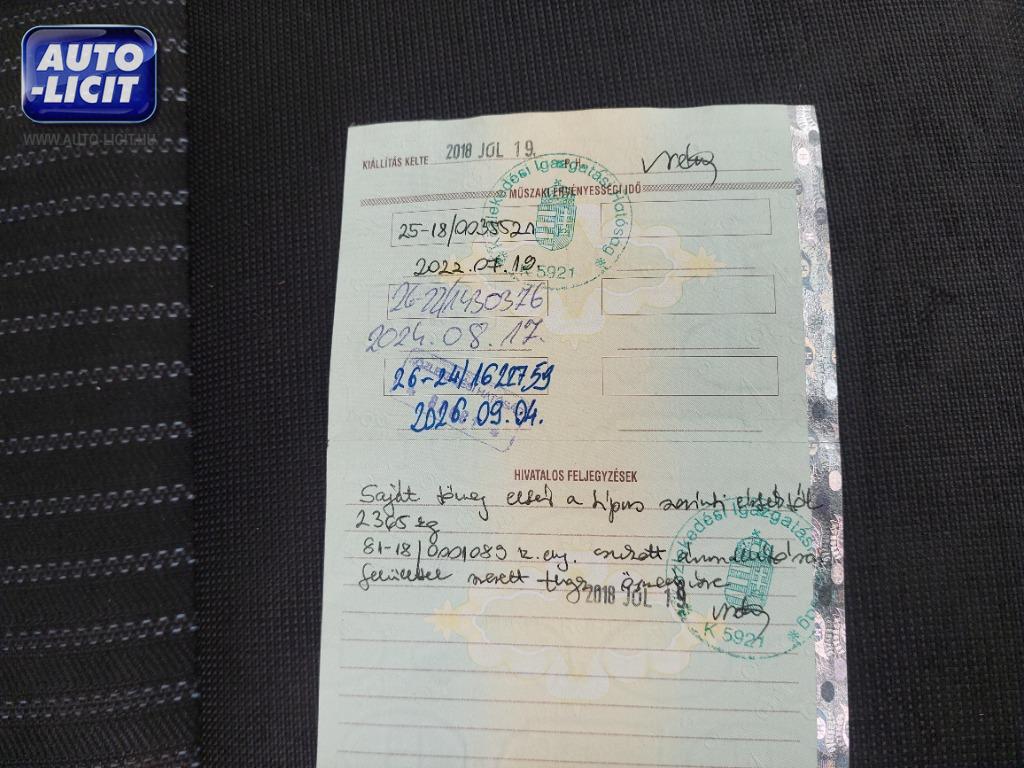 AUTO
-LICIT
WWW.AUTO-LICIT.HU
KIÁLLÍTÁS KELTE 2018 JÚL 19. P.H.
MŰSZAKI ÉRVÉNYESSÉGI IDŐ
Közlekedési Igazgatási Hatóság
K 5921
25-18/0035521
2022.07.19.
26-22/1430376
2024.08.17.
26-24/1621759
2026.09.04.
HIVATALOS FELJEGYZÉSEK
Saját tömeg eltérő a típus szerinti értéktől
2365 kg
81-18/0001089 sz. eng.
felülettel szerelt
2018 JÚL 19
Közlekedési Igazgatási
K 5921